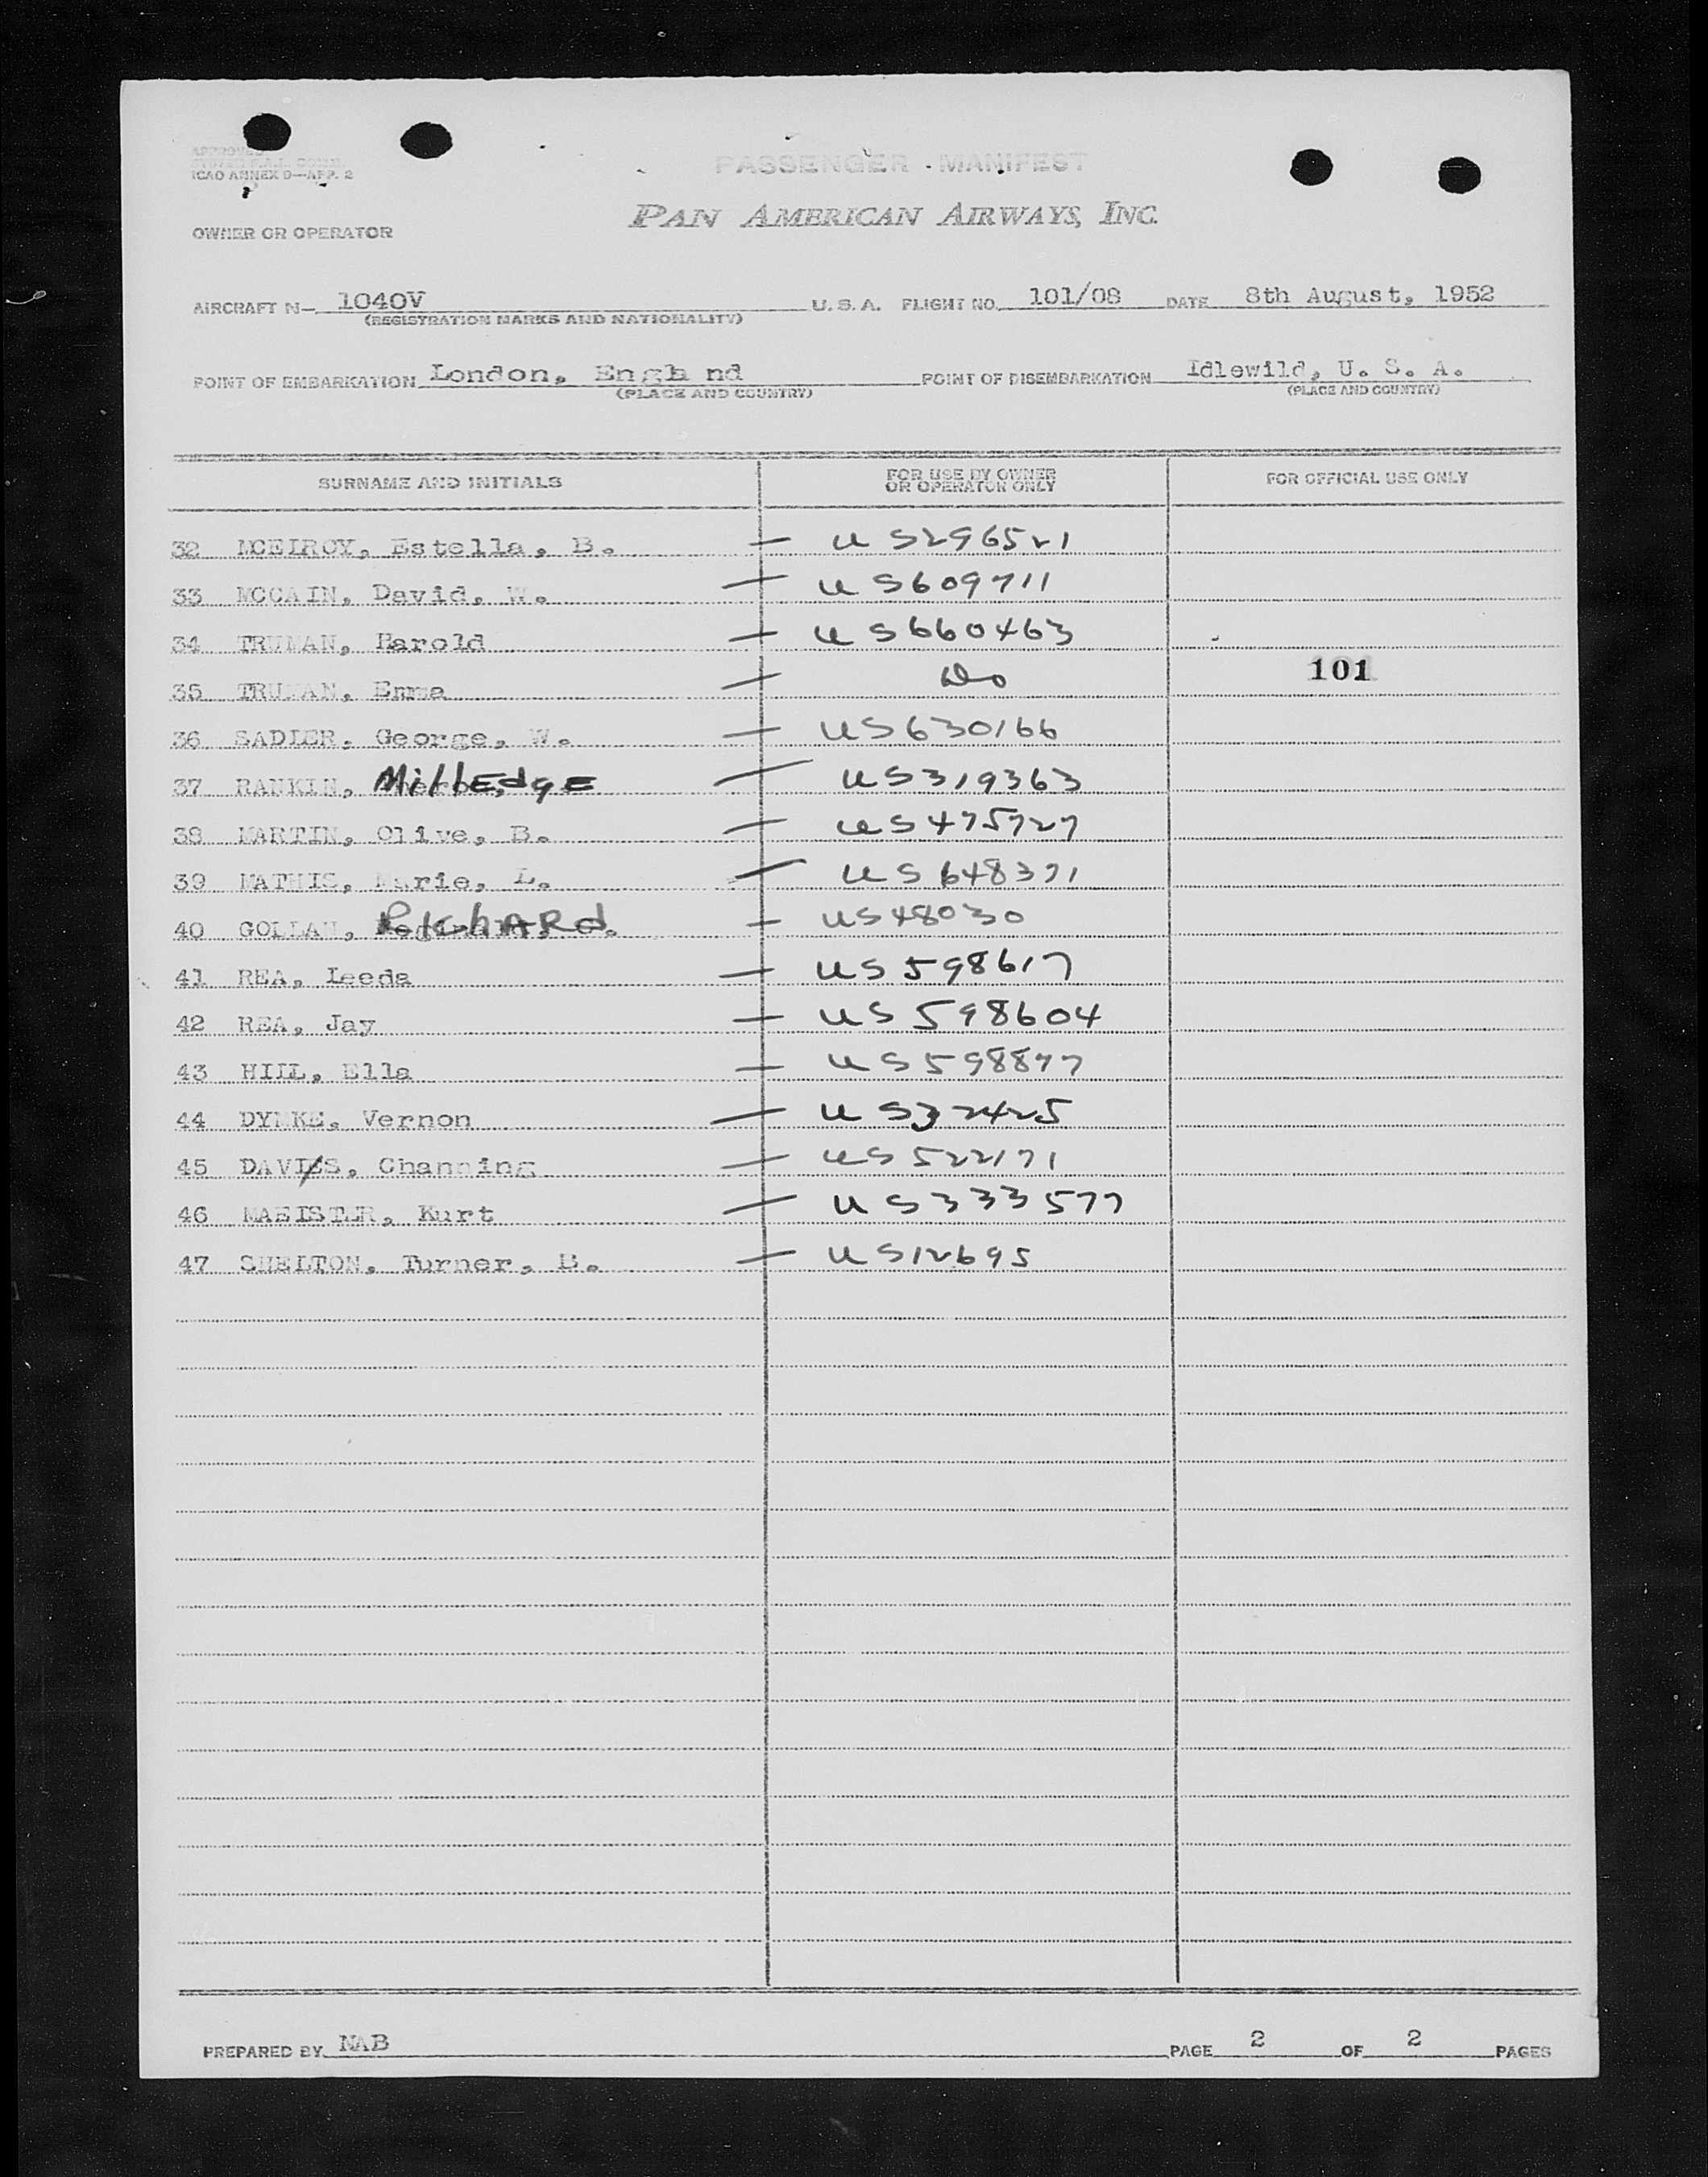 APPROVED
ICAO ANNEX 9—APP. 2
PASSENGER MANIFEST
PAN AMERICAN AIRWAYS, INC.
OWNER OR OPERATOR
AIRCRAFT N— 1040V U.S.A. FLIGHT NO. 101/08 DATE 8th August, 1952
(REGISTRATION MARKS AND NATIONALITY)
POINT OF EMBARKATION London, Engla nd POINT OF DISEMBARKATION Idlewild, U. S. A.
(PLACE AND COUNTRY) (PLACE AND COUNTRY)
SURNAME AND INITIALS FOR USE BY OWNER OR OPERATOR ONLY FOR OFFICIAL USE ONLY
32 MCELROY, Estella, B. — US296521
33 MCCAIN, David, W. — US609711
34 TRUMAN, Harold — US660463
35 TRUMAN, Emma — Do 101
36 SADLER, George, W. — US630166
37 RANKIN, MillEdgE — US319363
38 MARTIN, Olive, B. — US475727
39 MATHIS, Marie, L. — US648371
40 GOLLAN, RichARd. — US48030
41 REA, Leeda — US598617
42 REA, Jay — US598604
43 HILL, Ella — US598877
44 DYMKE, Vernon — US32425
45 DAVIES, Channing — US522171
46 MAEISTER, Kurt — US333577
47 SHELTON, Turner, B. — US12695
PREPARED BY NAB PAGE 2 OF 2 PAGES